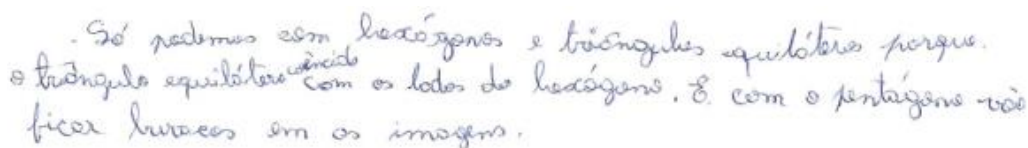 . Só podemos com hexágonos e triângulos equiláteros porque.
o triângulo equilátero coincide com os lados do hexágono. E com o pentágono vão
ficar buracos em os imagens.